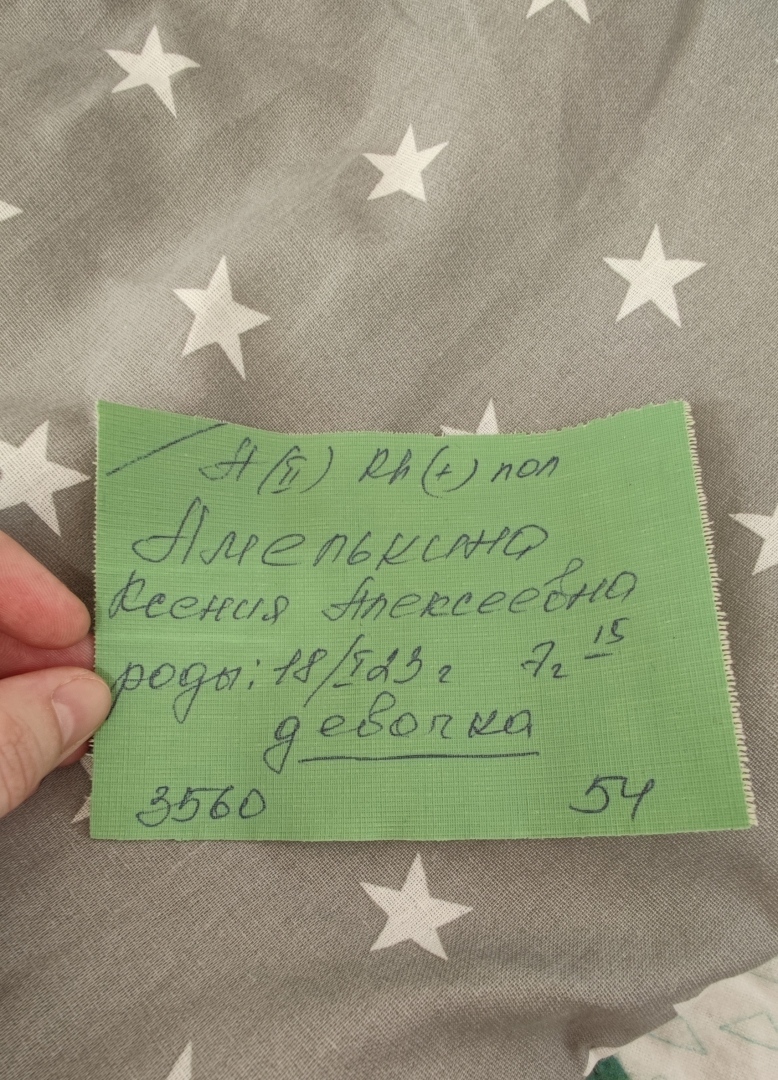 A(II) Rh(+) пол
Амелькина
Ксения Алексеевна
роды: 18/I 23 г 7г 15
девочка
3560 54